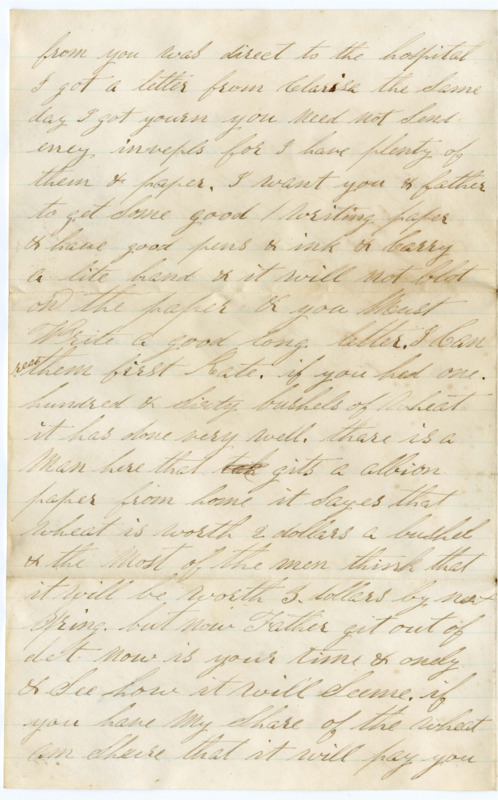 from you was direct to the hospital
I got a letter from Clarisa the same
day I got yourn you need not send
eney invepls for I have plenty of
them & paper. I want you & father
to get some good writing paper
& have good pens & ink & carry
a lite hand & it will not blot
on the paper & you must
Write a good long letter. I can
read
them first rate. if you hed one
hundred & dirty bushels of wheat
it has done very well. thare is a
man here that gits a albion
paper from home it sayes that
wheat is worth 2 dollars a bushel
& the most of the men think that
it will be worth 3 dollars by next
Spring. but now Father git out of
det now is your time & onely
& see how it will seeme. if
you have my share of the wheat
am shure that it will pay you